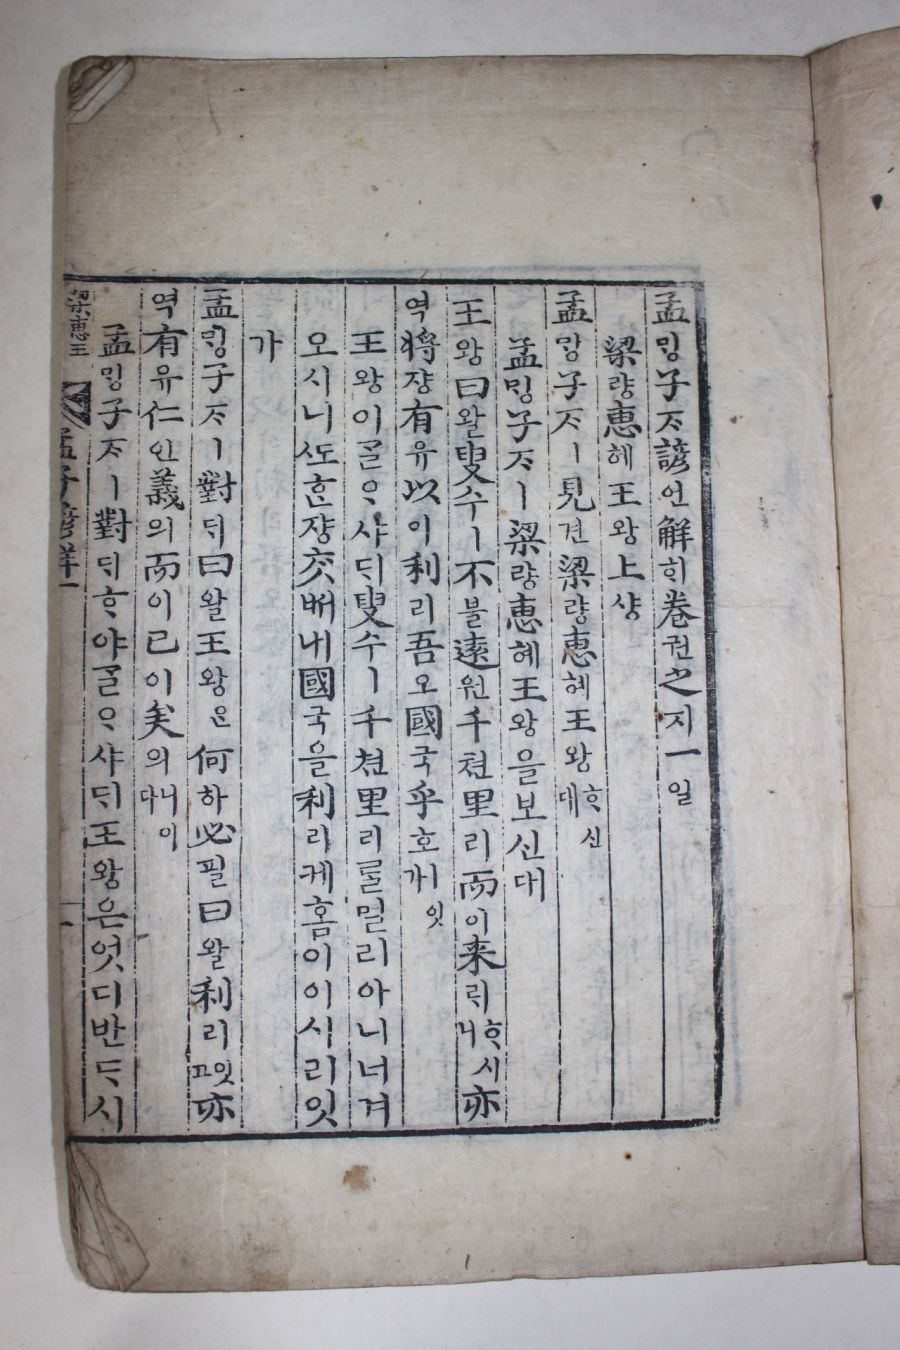 孟ᄆᆡᆼ子ᄌᆞ諺언解ᄒᆡ卷권之지一일
梁량惠혜王왕上샹
孟ᄆᆡᆼ子ᄌᆞㅣ見견梁량惠혜王왕ᄒᆞ신대
孟ᄆᆡᆼ子ᄌᆞㅣ梁량惠혜王왕을보신대
王왕曰왈叟수ㅣ不블遠원千쳔里리而이来ᄅᆡᄒᆞ시니亦
역將쟝有유以이利리吾오國국乎호ㅣ잇가
王왕이ᄀᆞᆯᄋᆞ샤ᄃᆡ叟수ㅣ千쳔里리ᄅᆞᆯ멀리아니너겨
오시니ᄯᅩᄒᆞᆫ쟝ᄎᆞᆺᄡᅥ내國국을利리케홈이이시리잇
가
孟ᄆᆡᆼ子ᄌᆞㅣ對ᄃᆡ曰왈王왕은何하必필曰왈利리잇고亦
역有유仁인義의而이已이矣의니이다
孟ᄆᆡᆼ子ᄌᆞㅣ對ᄃᆡᄒᆞ야ᄀᆞᆯᄋᆞ샤ᄃᆡ王왕은엇디반ᄃᆞ시
梁惠王 孟子諺解一 一